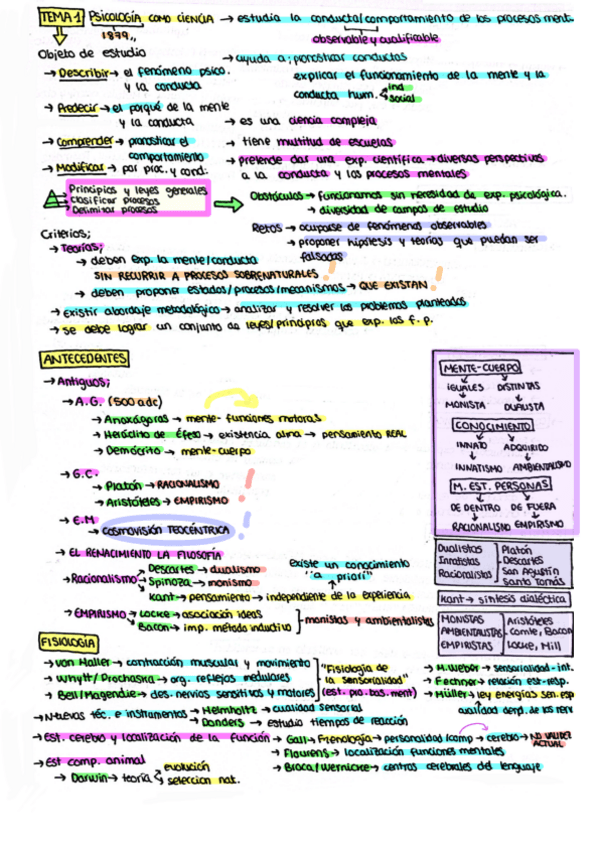 TEMA 1 PSICOLOGÍA COMO CIENCIA → estudia la conducta/comportamiento de los procesos ment.
1879,,
observable y cualificable
Objeto de estudio
→ ayuda a; pronosticar conductas
→ Describir → el fenómeno psico. y la conducta
explicar el funcionamiento de la mente y la conducta hum. ind
social
→ Predecir → el porqué de la mente y la conducta
→ es una ciencia compleja
→ Comprender → pronosticar el comportamiento
→ tiene multitud de escuelas
→ Modificar → por proc. y cond.
→ pretende dar una exp. científica → diversas perspectivas
a la conducta y los procesos mentales
Principios y leyes generales
Clasificar procesos
Delimitar procesos
Obstáculos → funcionamos sin necesidad de exp. psicológica.
→ diversidad de campos de estudio
Criterios;
Retos → ocuparse de fenómenos observables
→ proponer hipótesis y teorías que puedan ser
falsadas
→ Teorías;
→ deben exp. la mente/conducta
SIN RECURRIR A PROCESOS SOBRENATURALES !
→ deben proponer estados/procesos/mecanismos → QUE EXISTAN !
→ existir abordaje metodológico → analizar y resolver los problemas planteados
→ se debe lograr un conjunto de leyes/principios que exp. los f. p.
ANTECEDENTES
→ Antiguos;
→ A.G. (500 adc)
→ Anaxágoras → mente- funciones motoras
→ Heráclito de Éfeso → existencia alma → pensamiento REAL
→ Demócrito → mente-cuerpo
→ G.C.
→ Platón → RACIONALISMO
→ Aristóteles → EMPIRISMO →
→ E.M
→ COSMOVISIÓN TEOCÉNTRICA
→ EL RENACIMIENTO LA FILOSOFÍA
→ Racionalismo → Descartes → dualismo
→ Spinoza → monismo
→ Kant → pensamiento → independiente de la experiencia
existe un conocimiento
"a priori"
→ EMPIRISMO → LOCKE → asociación ideas
→ Bacon → imp. método inductivo
monistas y ambientalistas
MENTE-CUERPO
IGUALES DISTINTAS
MONISTA DUALISTA
CONOCIMIENTO
INNATO ADQUIRIDO
INNATISMO AMBIENTALISMO
M. EST. PERSONAS
DE DENTRO DE FUERA
RACIONALISMO EMPIRISMO
Dualistas
Innatistas
Racionalistas
Platón
Descartes
San Agustín
Santo Tomás
Kant → síntesis dialéctica
MONISTAS
AMBIENTALISTAS
EMPIRISTAS
Aristóteles
Comte, Bacon
Locke, Mill
FISIOLOGÍA
→ von Haller → contracción muscular y movimiento
→ Whytt/Prochaska → org. reflejos medulares
→ Bell/Magendie → des. nervios sensitivos y motores
"Fisiología de
la sensorialidad"
(est. pro. bas. ment)
→ M. Weber → sensorialidad-int.
→ Fechner → relación est-resp.
→ Müller → ley energías sen. esp
cualidad depd. de los nerv
→ Nuevas téc. e instrumentos → Helmholtz → cualidad sensorial
→ Donders → estudio tiempos de reacción
→ Est. cerebro y localización de la función → Gall → Frenología → personalidad/comp → cerebro → NO VALIDEZ ACTUAL
→ Flourens → localización funciones mentales
→ Broca/Wernicke → centros cerebrales del lenguaje
→ Est comp. animal
→ Darwin → teoría evolución
selección nat.